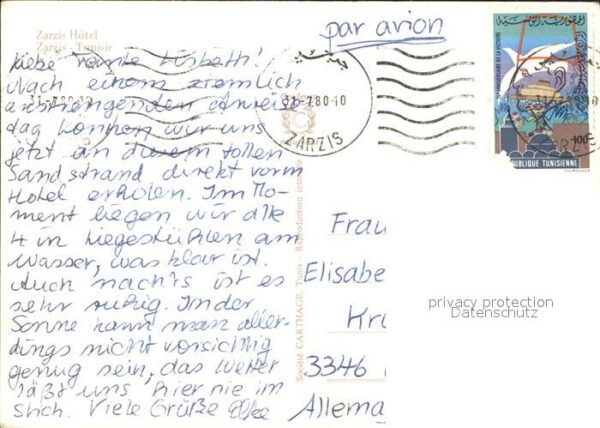 Zarzis Hôtel
Zarzis - Tunisie
par avion
Liebe Tante Lisbeth!
Nach einem ziemlich
anstrengenden Anreise-
tag können wir uns
jetzt an diesem tollen
Sandstrand direkt vorm
Hotel erholen. Im Mo-
ment liegen wir alle
4 in Liegestühlen am
Wasser, was klar ist.
Auch nachts ist es
sehr ruhig. In der
Sonne kann man aller-
dings nicht vorsichtig
genug sein, das Wetter
läßt uns hier nie im
Stich. Viele Grüße Elke
-7.80-10
ZARZIS
الجمهورية التونسية
ANNIVERSAIRE DE LA VICTOIRE
100
REPUBLIQUE TUNISIENNE
Société CARTHAGE, Tunis - Reproduction interdite
Frau
Elisabe
Kr
3346
Allema
privacy protection
Datenschutz